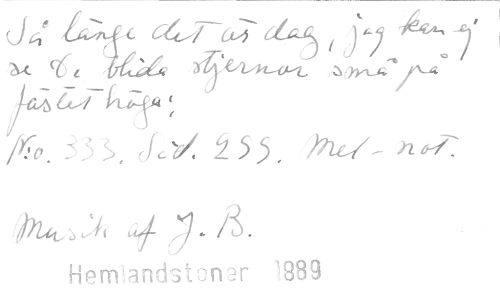 Så länge det är dag, jag kan ej
se De blida stjernor små på
fästet höga;
No. 333. Sid. 299. Mel-not.
Musik af J. B.
Hemlandstoner 1889